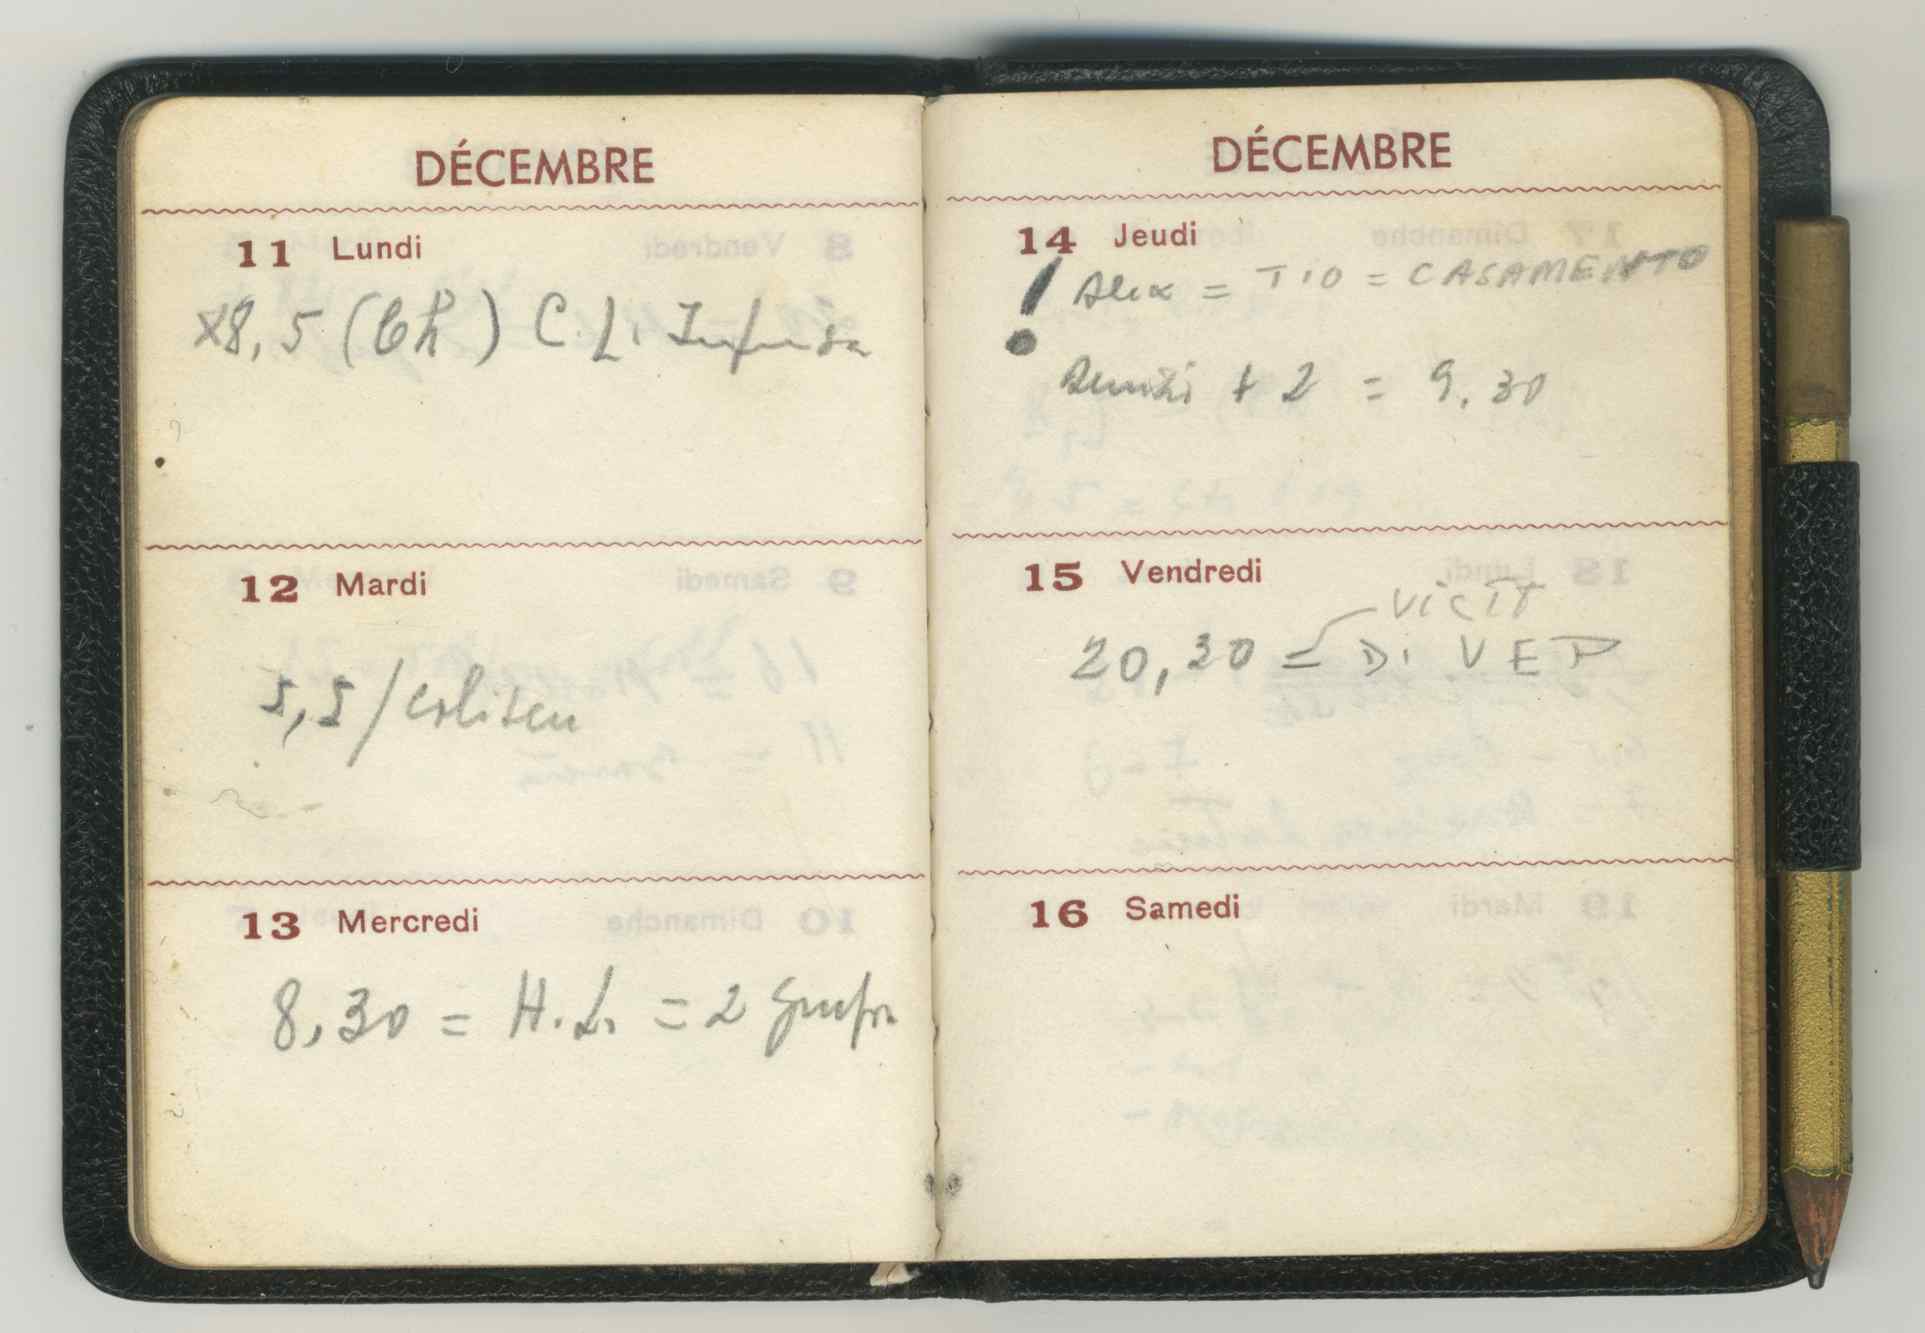 DÉCEMBRE
11 Lundi
x8,5 (Ch) C.L.
12 Mardi
5,5 / Coliseu
13 Mercredi
8,30 = H.L. = 2
DÉCEMBRE
14 Jeudi
! Alix = TIO = CASAMENTO
+ 2 = 9.30
15 Vendredi
VICIT
20,30 = DI VEP
16 Samedi